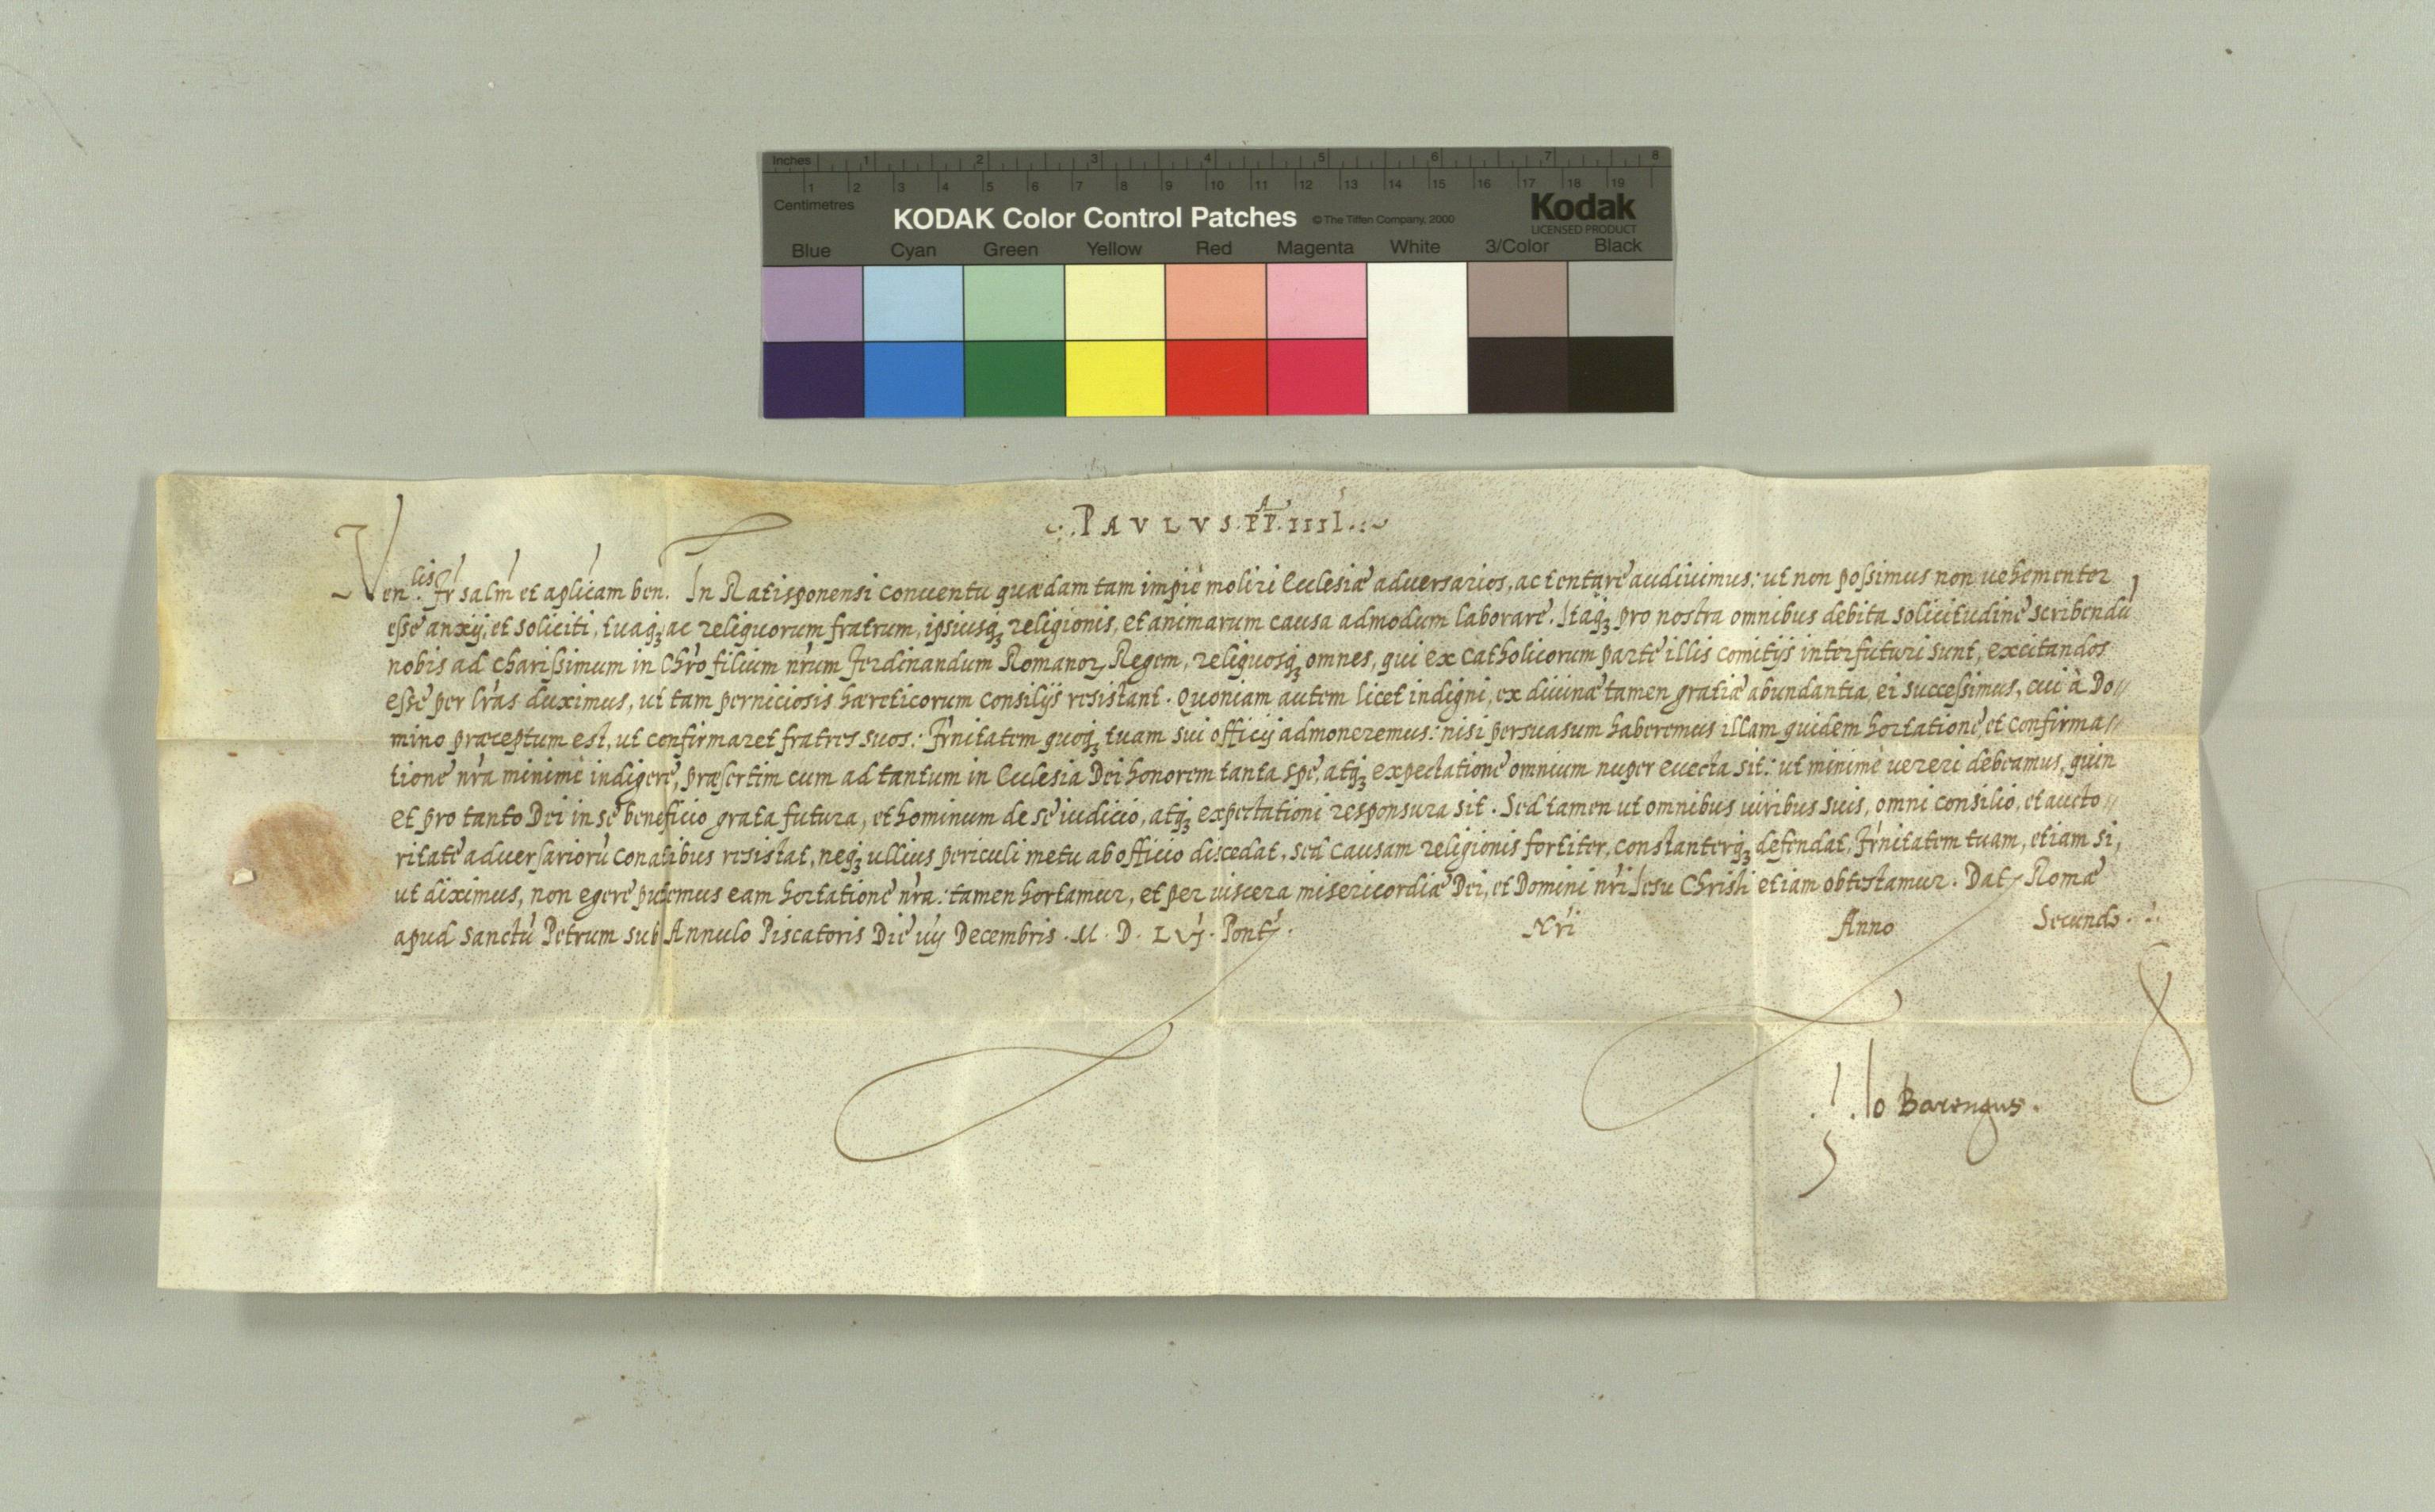 Inches 1 2 3 4 5 6 7 8
1 2 3 4 5 6 7 8 9 10 11 12 13 14 15 16 17 18 19
Centimetres
KODAK Color Control Patches © The Tiffen Company, 2000 Kodak
LICENSED PRODUCT
Blue Cyan Green Yellow Red Magenta White 3/Color Black
PAVLVS. PP. IIII.
Ven. lis fr̃ salm̃ et aplicam ben. In Ratisponensi conuentu quædam tam impie moliri Ecclesiæ aduersarios, ac tentare audiuimus: ut non possimus non uehementer
esse anxij, et soliciti, tuaq; ac reliquorum fratrum, ipsiusq; religionis, et animarum causa admodum laborare. Itaq; pro nostra omnibus debita solicitudine scribendũ
nobis ad charissimum in Chrõ filium nr̃um Ferdinandum Romanoꝝ Regem, reliquosq; omnes, qui ex Catholicorum parte illis comitijs interfuturi sunt, excitandos
esse per lr̃as duximus, ut tam perniciosis hæreticorum consilijs resistant. Quoniam autem licet indigni, ex diuinæ tamen gratiæ abundantia, ei successimus, cui à Do//
mino præceptum est, ut confirmaret fratres suos: Fr̃nitatem quoq; tuam sui officij admoneremus: nisi persuasum haberemus illam quidem hortatione, et confirma//
tione nr̃a minimè indigere, præsertim cum ad tantum in Ecclesia Dei honorem tanta spe, atq; expectatione omnium nuper euecta sit: ut minimè uereri debeamus, quin
et pro tanto Dei in se beneficio grata futura, et hominum de se iudicio, atq; expectationi responsura sit. Sed tamen ut omnibus uiribus suis, omni consilio, et aucto//
ritate aduersariorũ conatibus resistat, neq; ullius periculi metu ab officio discedat, sed causam religionis fortiter, constanterq; defendat, Fr̃nitatem tuam, etiam si,
ut diximus, non egere putemus eam hortatione nr̃a: tamen hortamur, et per uiscera misericordiæ Dei, et Domini nr̃i Iesu Christi etiam obtestamur. Dat. Romæ
apud Sanctũ Petrum sub Annulo Piscatoris Die uij Decembris. M. D. LVj. Pont. Nr̃i Anno Secundo.
Io Barengus.